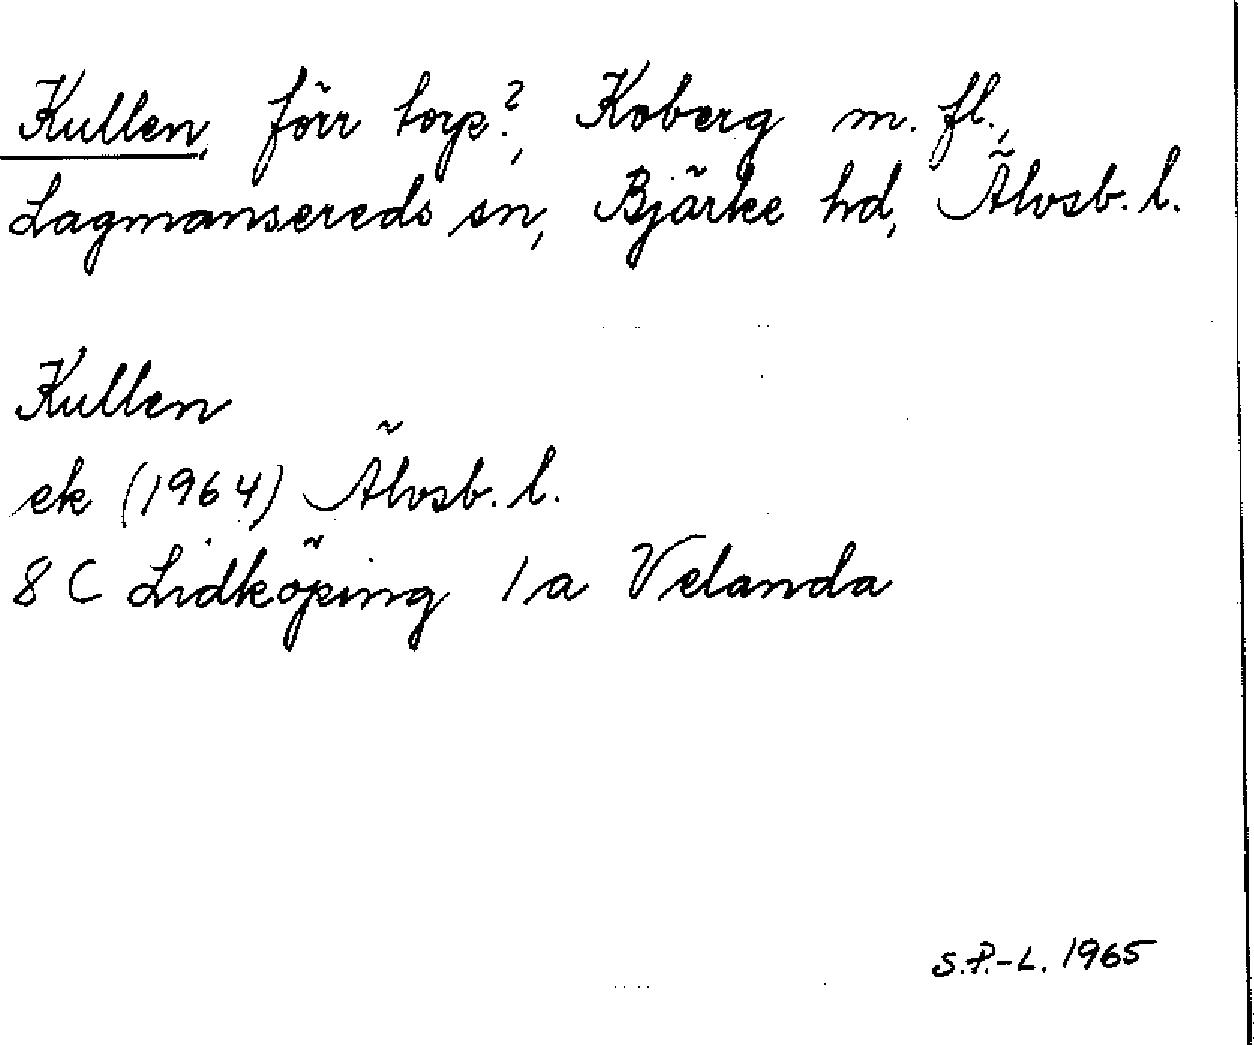 Kullen, förr torp?, Koberg m. fl.,
Lagmansereds sn, Bjärke hd, Älvsb. l.
Kullen
ek (1964) Älvsb. l.
8 C Lidköping 1 a Velanda
S.P.-L. 1965